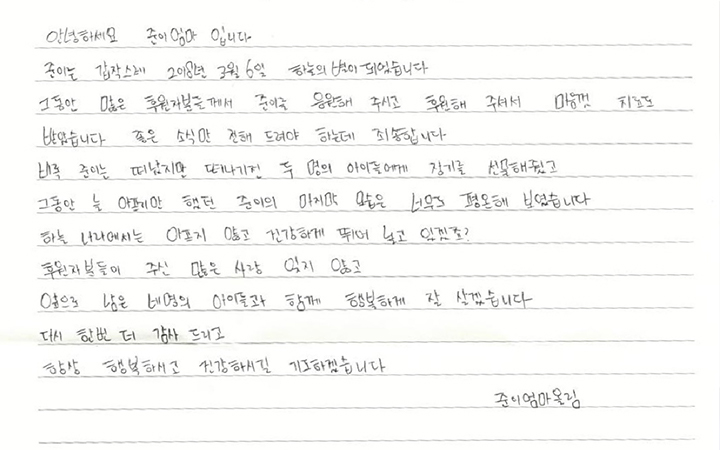 안녕하세요 준이엄마 입니다.
준이는 갑작스레 2018년 3월 6일 하늘의 별이 되었습니다
그동안 많은 후원자분들께서 준이를 응원해 주시고 후원해 주셔서 마음껏 치료도
받았습니다 좋은 소식만 전해 드려야 하는데 죄송합니다.
비록 준이는 떠났지만 떠나기전 두 명의 아이들에게 장기를 선물해줬고
그동안 늘 아프기만 했던 준이의 마지막 모습은 너무도 평온해 보였습니다
하늘 나라에서는 아프지 않고 건강하게 뛰어 놀고 있겠죠?
후원자분들이 주신 많은 사랑 잊지 않고
앞으로 남은 네명의 아이들과 함께 행복하게 잘 살겠습니다
다시 한번 더 감사 드리고
항상 행복하시고 건강하시길 기도하겠습니다
준이엄마올림